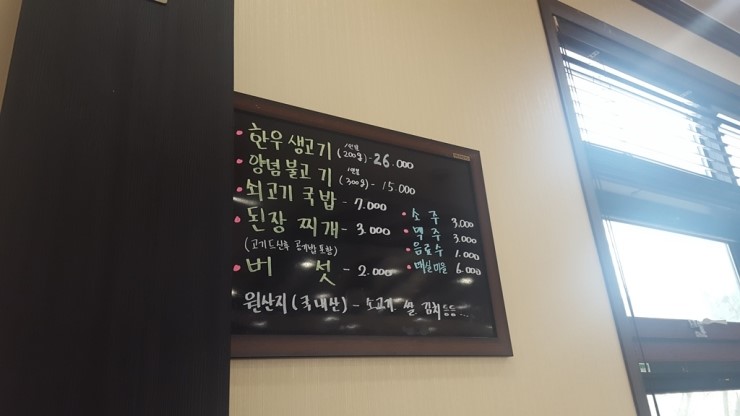 한우 생고기 (200g) - 26.000
양념 불고기 (300g) - 15.000
쇠고기 국밥 - 7.000
된장 찌개 - 3.000
(고기드신후 공기밥 포함)
버섯 - 2.000
소주 3.000
맥주 3.000
음료수 1.000
매실마을 6.000
원산지 (국내산) - 소고기 쌀 김치 등등...